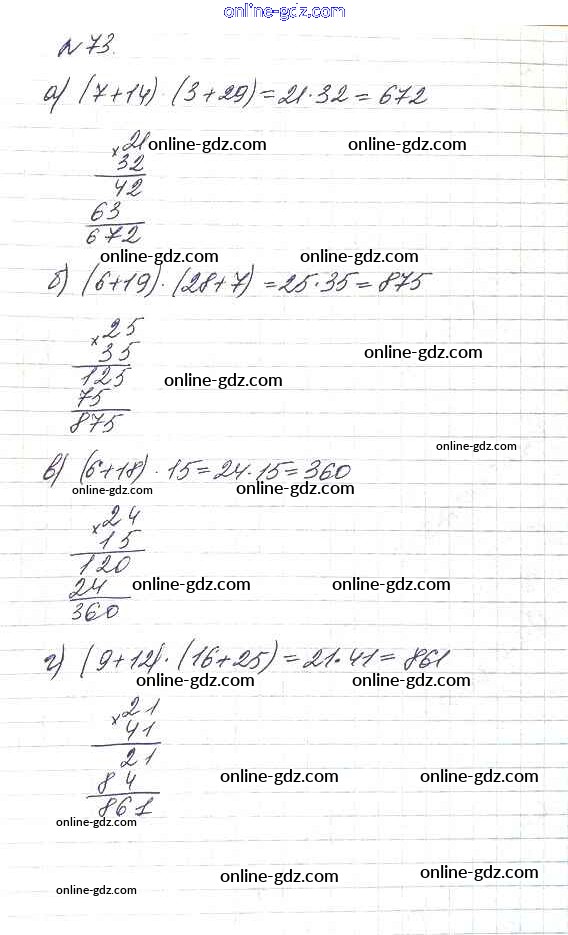 online-gdz.com
№73.
а) (7+14) · (3+29) = 21·32 = 672
× 21 online-gdz.com online-gdz.com
32
42
63
672
online-gdz.com online-gdz.com
б) (6+19) · (28+7) = 25·35 = 875
× 25
35 online-gdz.com
125 online-gdz.com
75
875
online-gdz.com
в) (6+18) · 15 = 24·15 = 360
online-gdz.com online-gdz.com
× 24
15
120
24 online-gdz.com online-gdz.com
360
г) (9+12) · (16+25) = 21·41 = 861
online-gdz.com online-gdz.com
× 21
41
21
84 online-gdz.com online-gdz.com
861
online-gdz.com
online-gdz.com online-gdz.com
online-gdz.com